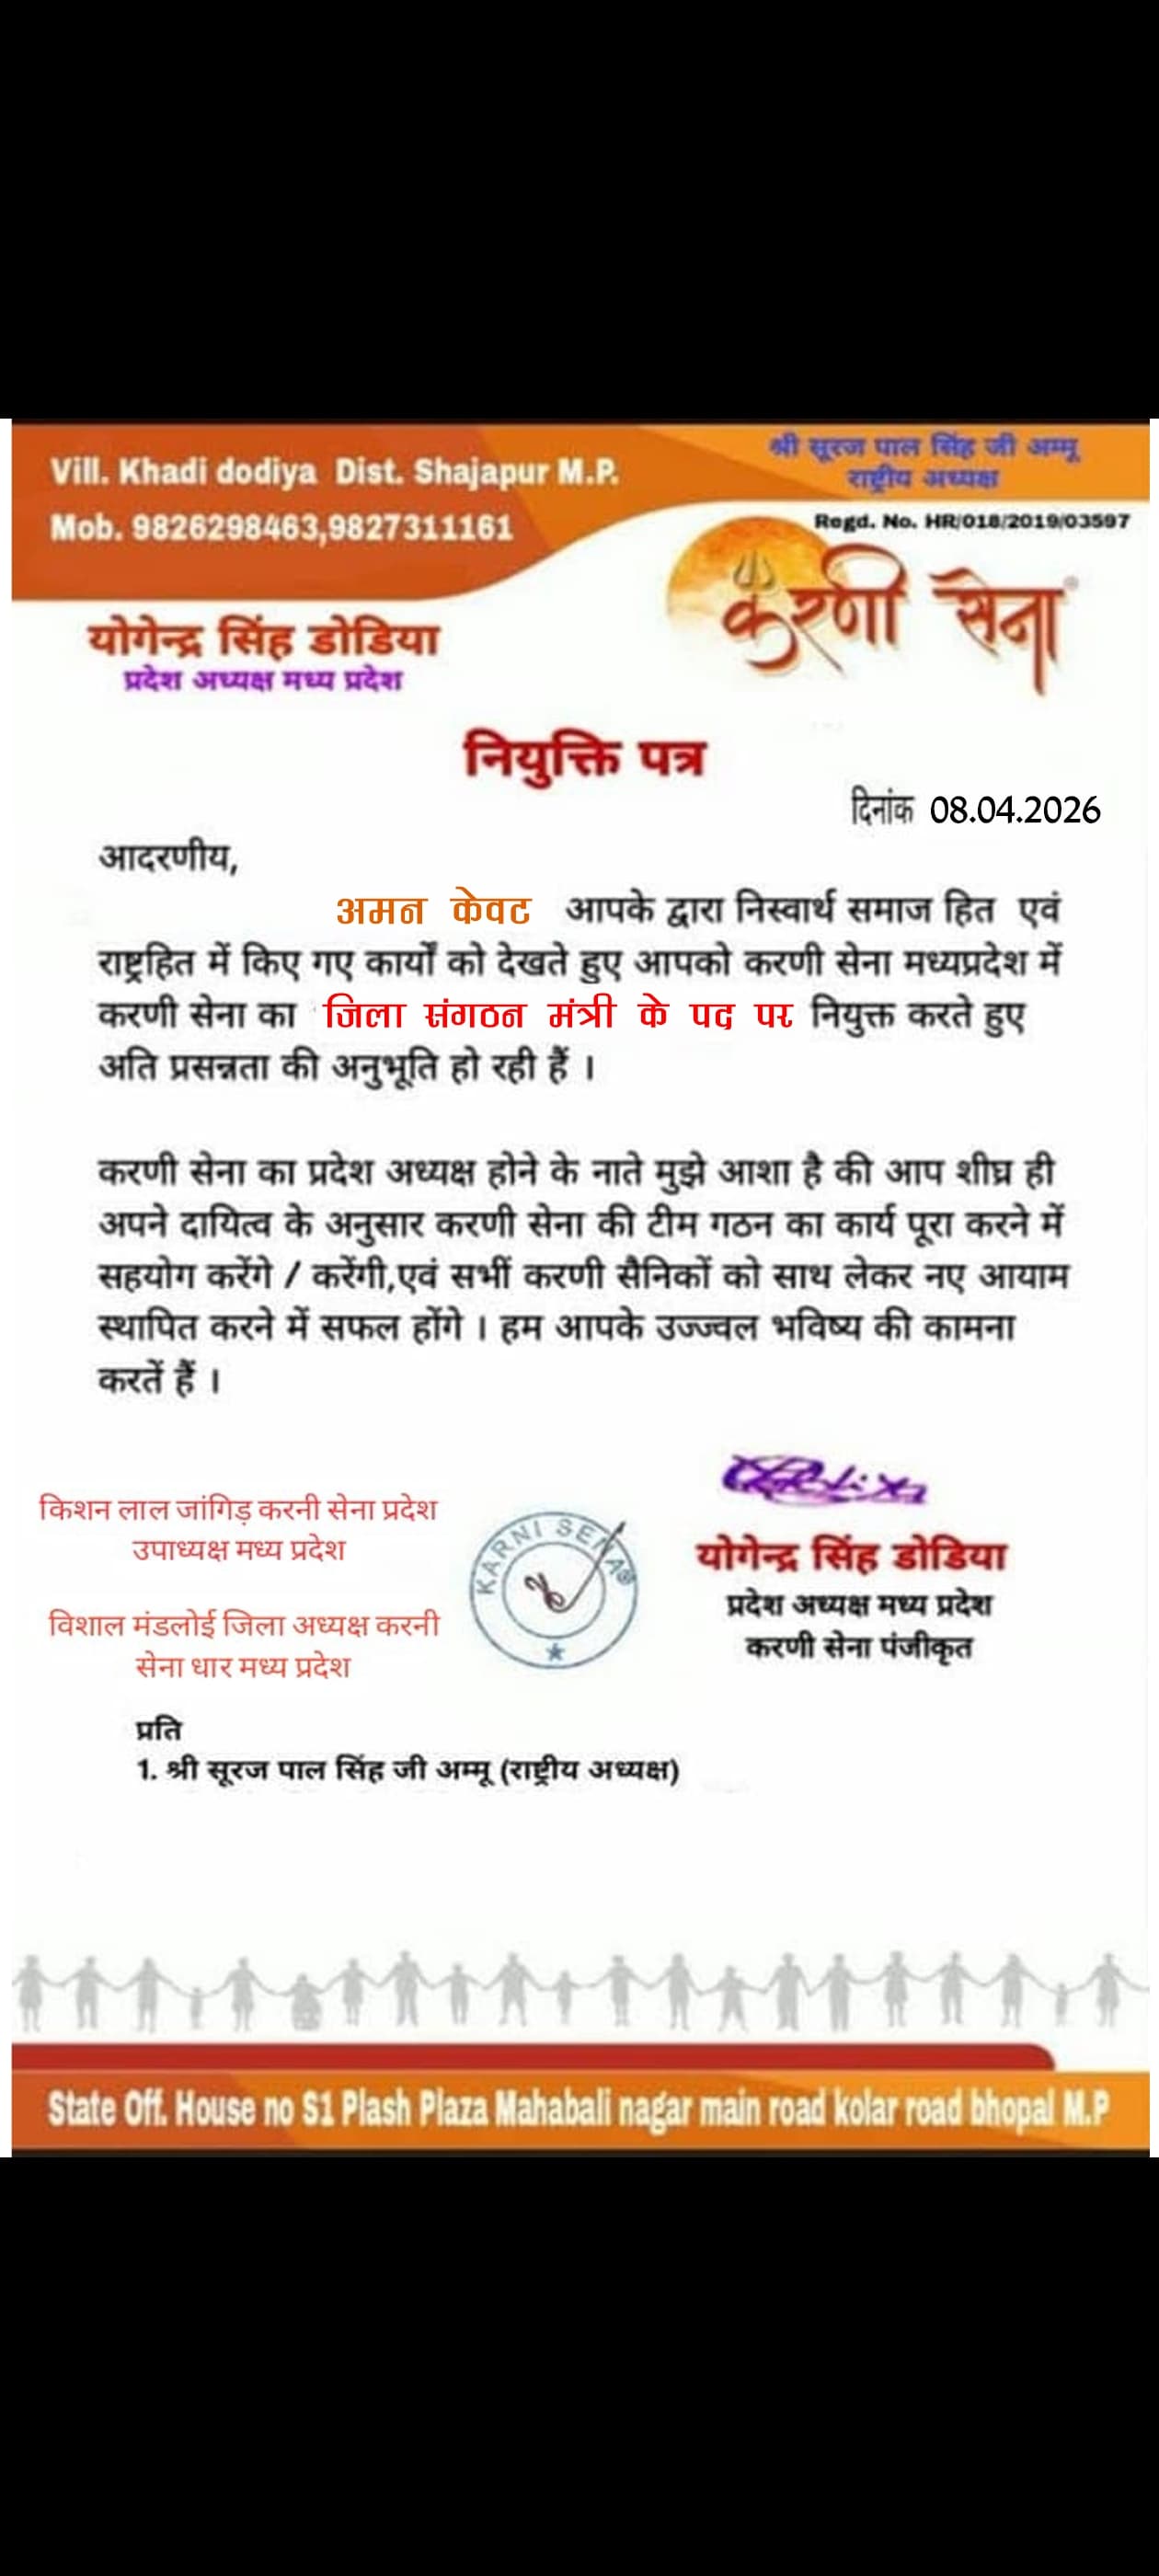 श्री सूरज पाल सिंह जी अम्मू
राष्ट्रीय अध्यक्ष
Vill. Khadi dodiya Dist. Shajapur M.P.
Mob. 9826298463,9827311161
Regd. No. HR/018/2019/03597
करणी सेना
योगेन्द्र सिंह डोडिया
प्रदेश अध्यक्ष मध्य प्रदेश
नियुक्ति पत्र
दिनांक 08.04.2026
आदरणीय,
अमन केवट आपके द्वारा निस्वार्थ समाज हित एवं
राष्ट्रहित में किए गए कार्यों को देखते हुए आपको करणी सेना मध्यप्रदेश में
करणी सेना का जिला संगठन मंत्री के पद पर नियुक्त करते हुए
अति प्रसन्नता की अनुभूति हो रही हैं ।
करणी सेना का प्रदेश अध्यक्ष होने के नाते मुझे आशा है की आप शीघ्र ही
अपने दायित्व के अनुसार करणी सेना की टीम गठन का कार्य पूरा करने में
सहयोग करेंगे / करेंगी,एवं सभीं करणी सैनिकों को साथ लेकर नए आयाम
स्थापित करने में सफल होंगे । हम आपके उज्ज्वल भविष्य की कामना
करतें हैं ।
किशन लाल जांगिड़ करनी सेना प्रदेश
उपाध्यक्ष मध्य प्रदेश
विशाल मंडलोई जिला अध्यक्ष करनी
सेना धार मध्य प्रदेश
KARNI SENA
योगेन्द्र सिंह डोडिया
प्रदेश अध्यक्ष मध्य प्रदेश
करणी सेना पंजीकृत
प्रति
1. श्री सूरज पाल सिंह जी अम्मू (राष्ट्रीय अध्यक्ष)
State Off. House no S1 Plash Plaza Mahabali nagar main road kolar road bhopal M.P